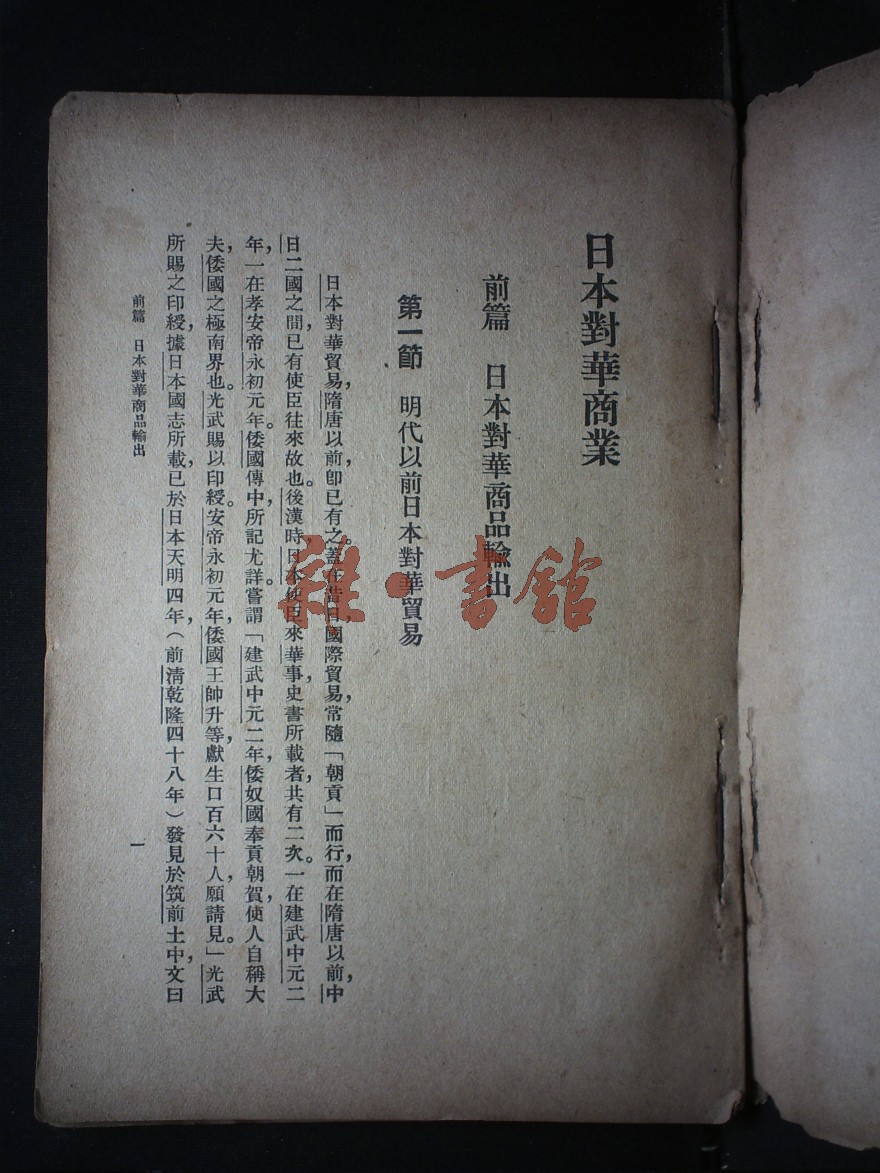 日本對華商業
前篇　日本對華商品輸出
第一節　明代以前日本對華貿易
日本對華貿易，隋唐以前，卽已有之。蓋在昔日，國際貿易，常隨「朝貢」而行，而在隋唐以前，中
日二國之間，已有使臣往來故也。後漢時，日本使臣來華事，史書所載者，共有二次。一在建武中元二
年，一在孝安帝永初元年。倭國傳中，所記尤詳。嘗謂「建武中元二年，倭奴國奉貢朝賀，使人自稱大
夫，倭國之極南界也。光武賜以印綬。安帝永初元年，倭國王帥升等，獻生口百六十人，願請見。」光武
所賜之印綬，據日本國志所載，已於日本天明四年，（前淸乾隆四十八年）發見於筑前土中，文曰
前篇　日本對華商品輸出
一
雜·書館